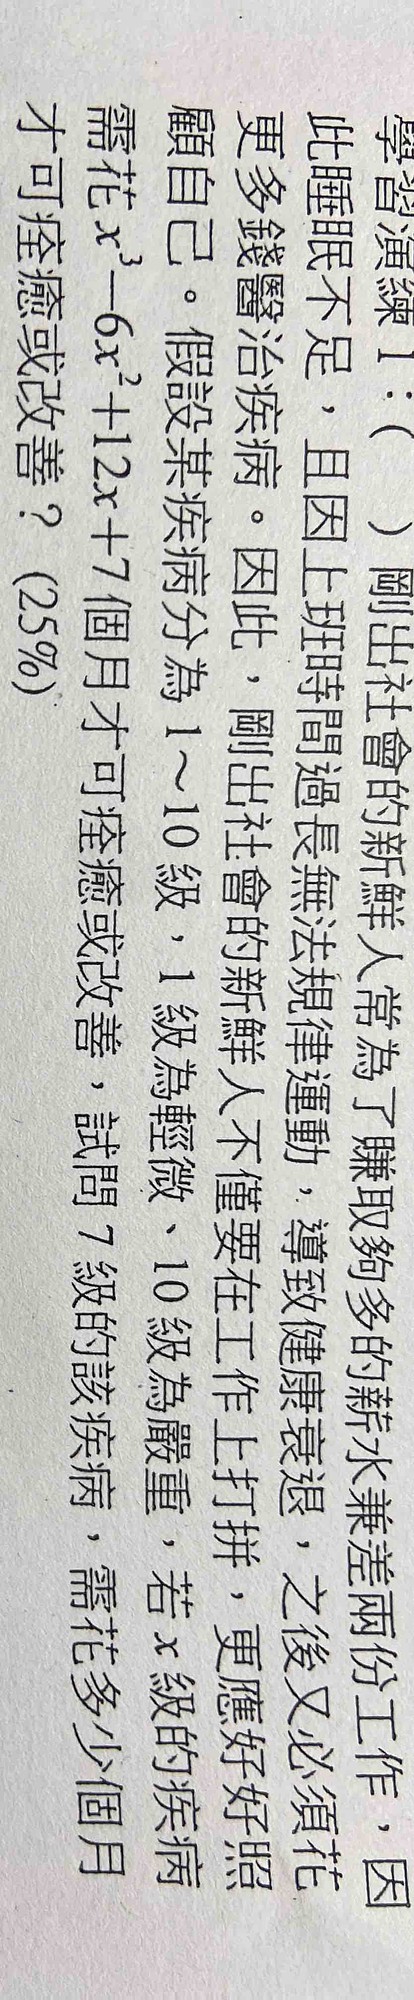 學習演練 1：（　　）剛出社會的新鮮人常為了賺取夠多的薪水兼差兩份工作，因
此睡眠不足，且因上班時間過長無法規律運動，導致健康衰退，之後又必須花
更多錢醫治疾病。因此，剛出社會的新鮮人不僅要在工作上打拼，更應好好照
顧自己。假設某疾病分為 1～10 級，1 級為輕微、10 級為嚴重，若 x 級的疾病
需花 x³−6x²+12x+7 個月才可痊癒或改善，試問 7 級的該疾病，需花多少個月
才可痊癒或改善？(25%)